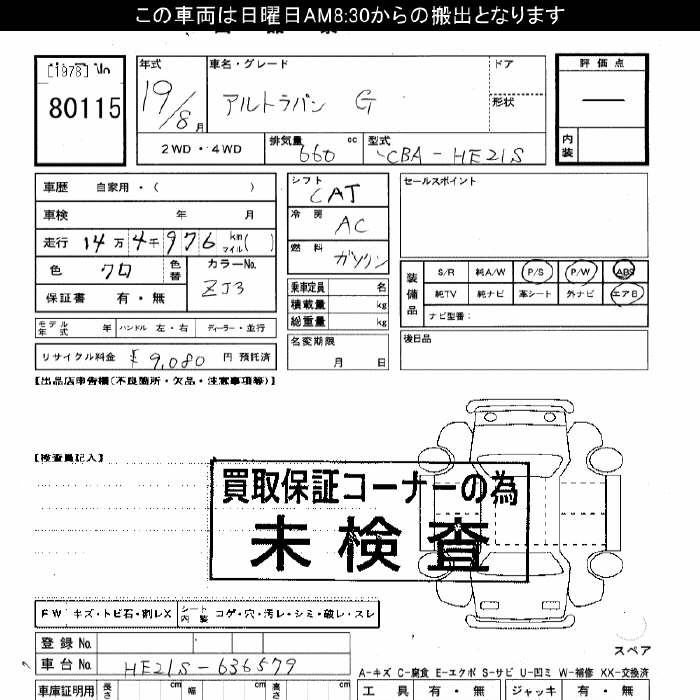 この車両は日曜日AM8:30からの搬出となります
[1978]
80115
年式
19/8月
車名・グレード
アルトラパン G
ドア
形状
評価点
—
内装
2WD・4WD
排気量 660 cc
型式 CBA-HE21S
車歴 自家用・( )
車検 年 月
走行 14万4千976 km マイル( )
色 クロ 色替
カラーNo. ZJ3
保証書 有・無
シフト CAT
冷房 AC
燃料 ガソリン
乗車定員 名
積載量 kg
総重量 kg
名変期限
月 日
セールスポイント
装備品
S/R 純A/W P/S P/W ABS
純TV 純ナビ 革シート 外ナビ エアB
ナビ型番:
後日品
モデル年式 年 ハンドル 左・右 ディーラー・並行
リサイクル料金 ¥9,080 円 預託済
【出品店申告欄(不良箇所・欠品・注意事項等)】
【検査員記入】
買取保証コーナーの為
未検査
FW キズ・トビ石・割レX シート内装 コゲ・穴・汚レ・シミ・破レ・スレ
登録No.
車台No. HE21S-636579
スペア
A-キズ C-腐食 E-エクボ S-サビ U-凹ミ W-補修 XX-交換済
車庫証明用 長さ cm 幅 cm 高さ cm
工具 有・無 ジャッキ 有・無